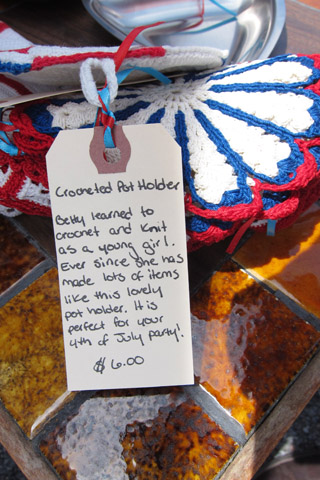 Crocheted Pot Holder
Betty learned to
crochet and Knit
as a young girl.
Ever since she has
made lots of items
like this lovely
pot holder. It is
perfect for your
4th of July party!
$6.00